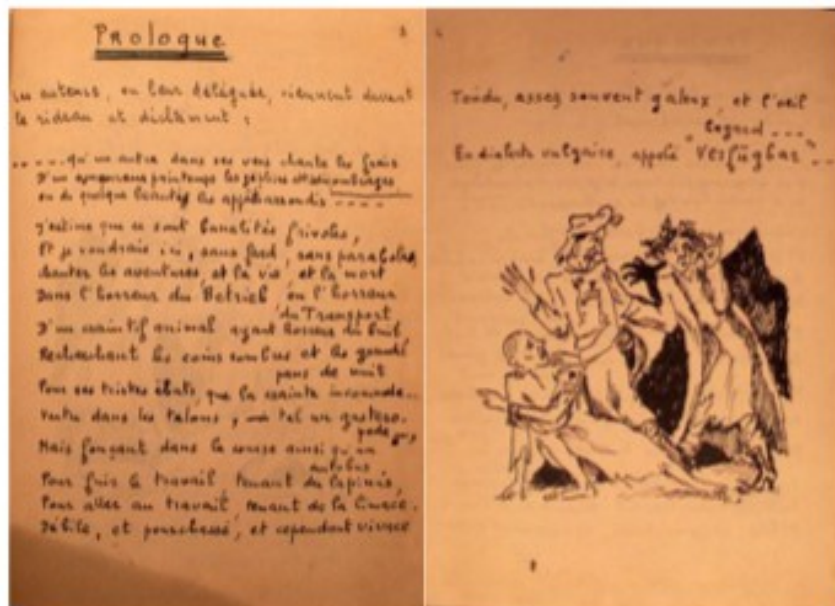 Prologue
3
Les auteurs, ou leur déléguée, viennent devant
le rideau et déclament :
.....qu'un autre dans ses vers chante les frais
D'un amoureux printemps les zéphirs
ou de quelque beautés les appâts arrondis ....
J'estime que ce sont banalités frivoles,
Et je voudrais ici, sans fard, sans paraboles,
chanter les aventures, et la vie et la mort
Dans l'horreur du Betrieb, ou l'horreur
du Transport
D'un craintif animal ayant horreur du bruit
Recherchant les coins sombres et les grands
pans de nuit
Pour ses tristes ébats, que la crainte incommode..
Ventre dans les talons, tel un gastero-
pode
Mais fonçant dans la course ainsi qu'un
autobus
Pour fuir le travail, tenant du lapinus,
Pour aller au travail, tenant de la limace.
Débile, et pourchassé, et cependant vivace
4
Tondu, assez souvent galeux, et l'oeil
hagard ---
En dialecte vulgaire, appelé "Verfügbar"--